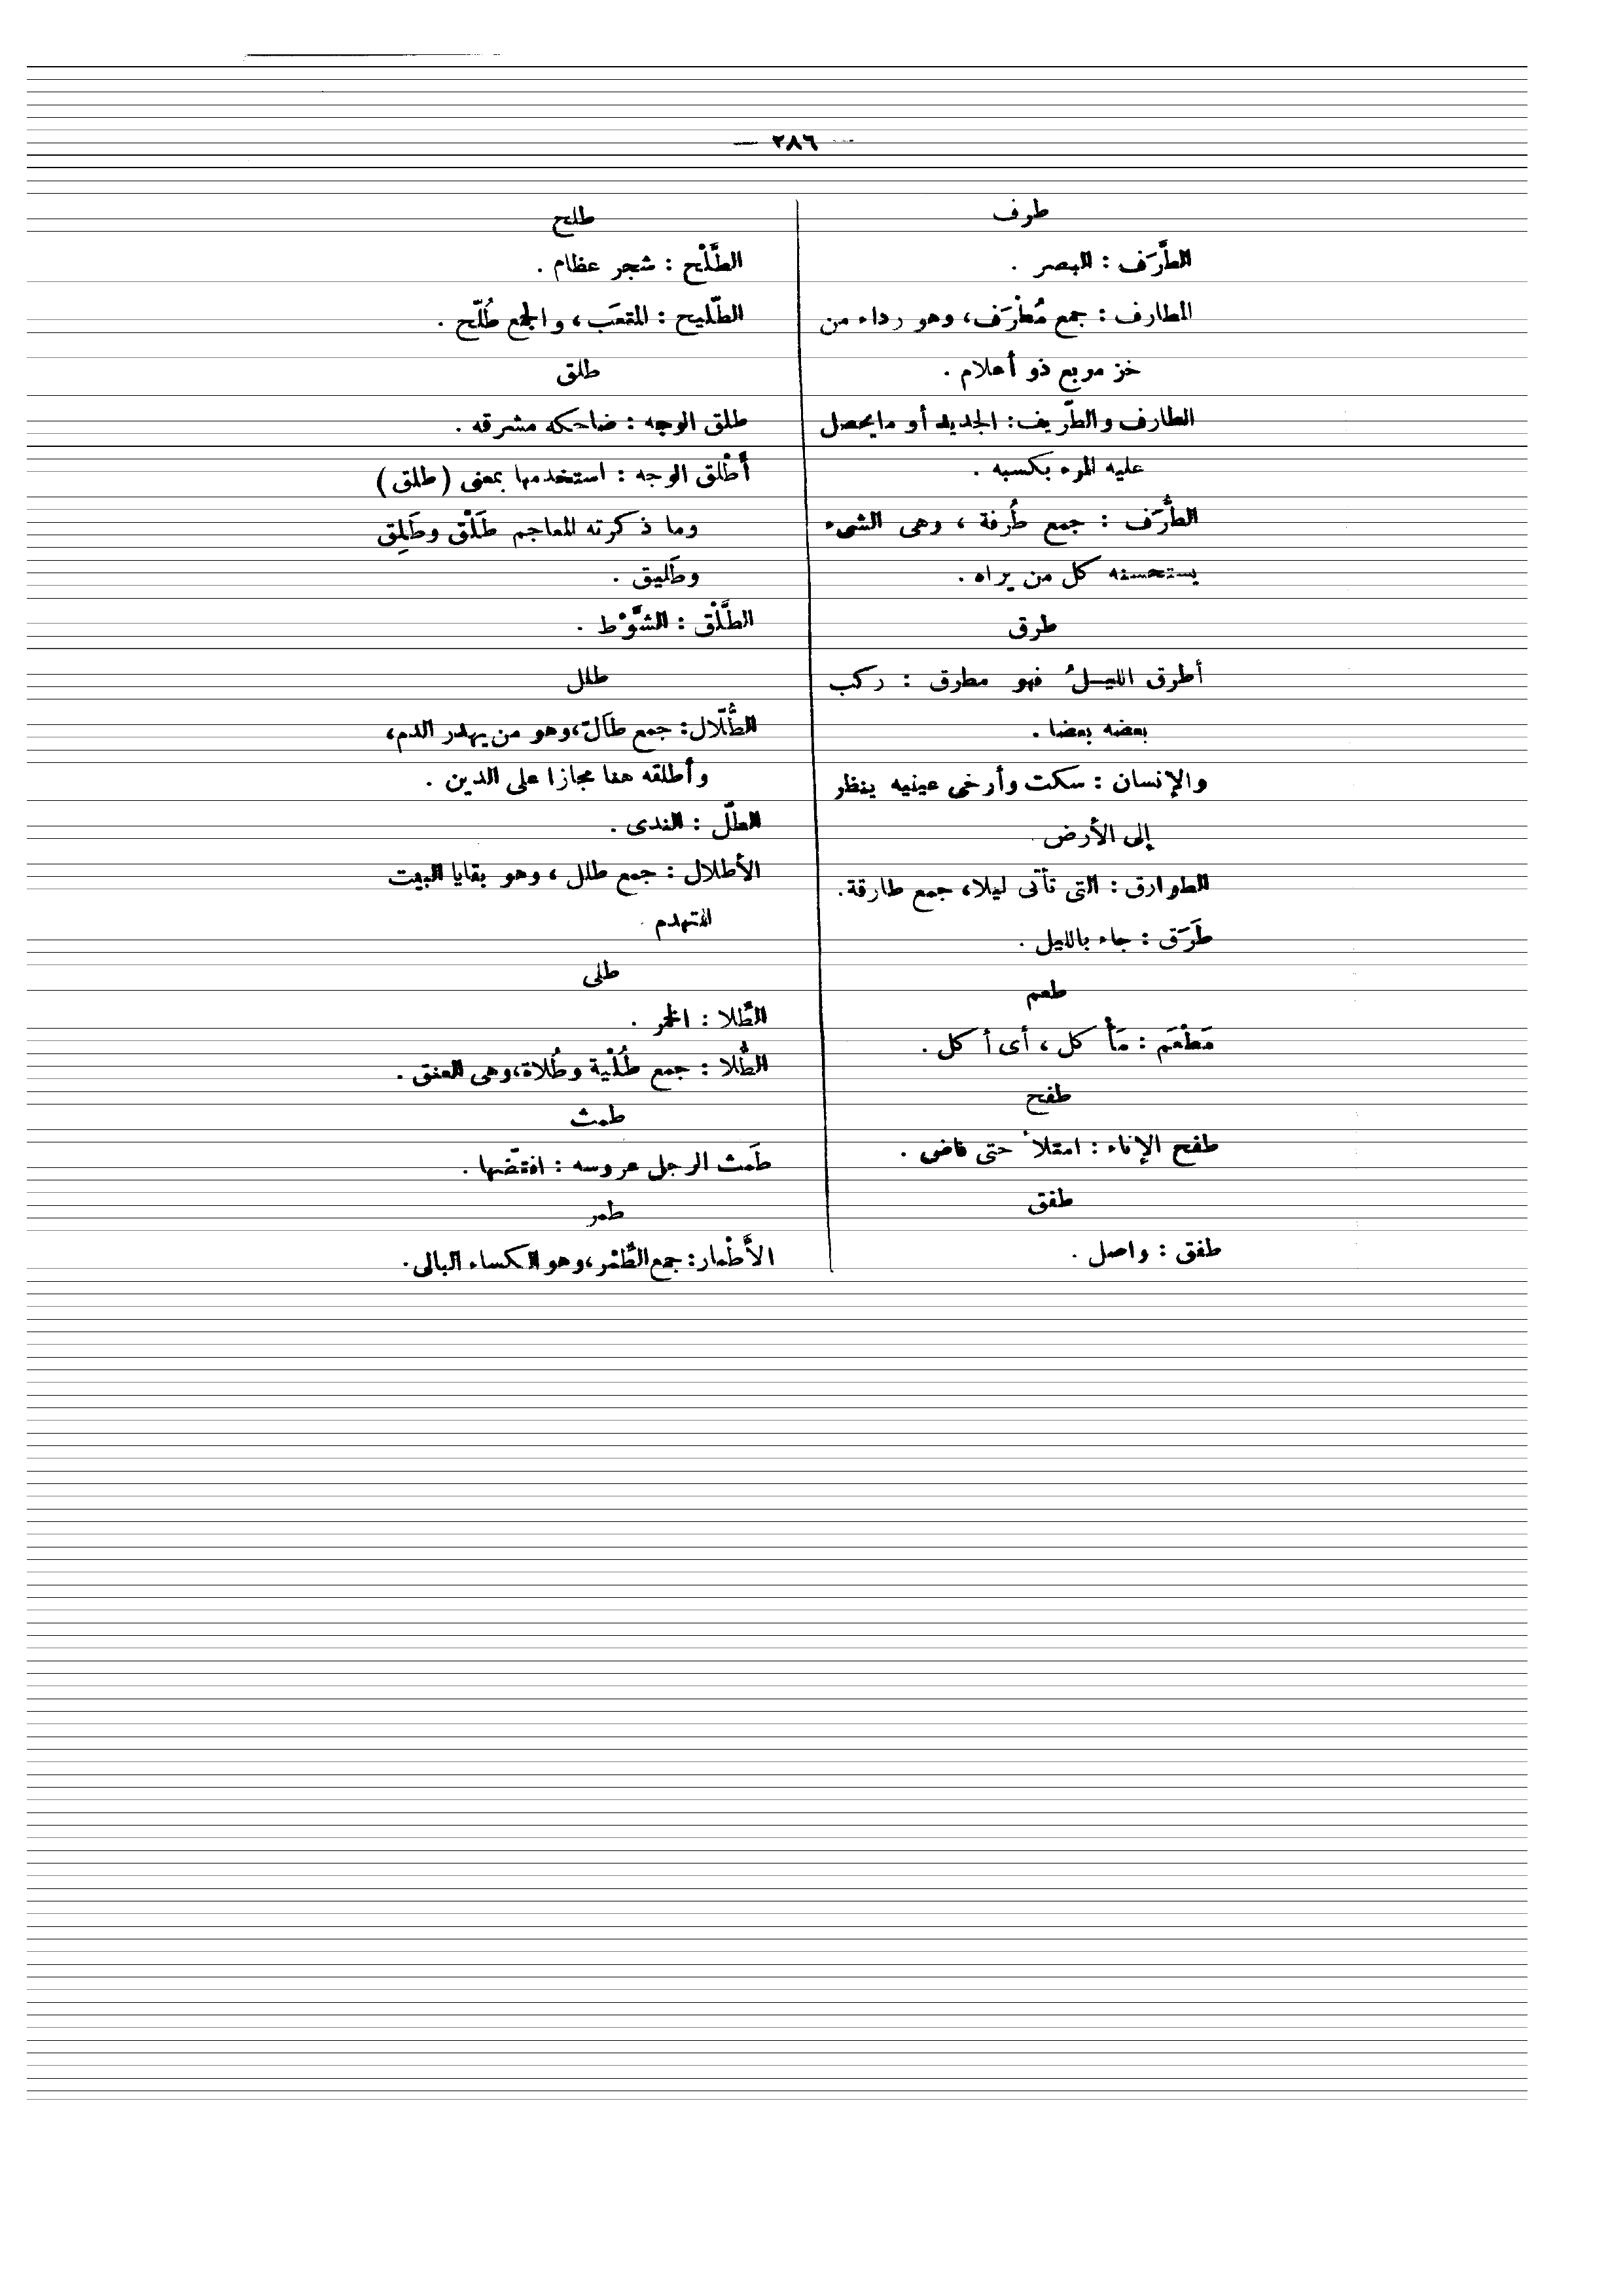 — ٢٨٦ —
طرف
الطَّرَف : البصر .
المطارف : جمع مُطْرَف، وهو رداء من
خز مربع ذو أعلام .
الطارف والطّريف : الجديد أو ما يحصل
عليه المرء بكسبه .
الطُّرَف : جمع طُرفة ، وهى الشىء
يستحسنه كل من يراه .
طرق
أطرق الليـلُ فهو مطرق : ركب
بعضه بعضا .
والإنسان : سكت وأرخى عينيه ينظر
إلى الأرض .
الطوارق : التى تأتى ليلا، جمع طارقة.
طَرَق : جاء بالليل .
طعم
مَطْعَم : مَأْكل ، أى أكل .
طفح
طفح الإناء : امتلأ حتى فاض .
طفق
طفق : واصل .
طلح
الطَّلْح : شجر عظام .
الطّليح : المتعَب ، والجمع طُلّح .
طلق
طلق الوجه : ضاحكه مشرقه .
أَطْلق الوجه : استخدمها بمعنى (طلق)
وما ذكرته المعاجم طَلْق وطَلِق
وطَليق .
الطَّلْق : الشَّوْط .
طلل
الطُّلّال : جمع طَالّ ، وهو من يهدر الدم،
وأطلقه هنا مجازا على الدين .
الطلّ : الندى .
الأطلال : جمع طلل ، وهو بقايا البيت
المتهدم .
طلى
الطِّلا : الخمر .
الطُّلا : جمع طُلْية وطُلاة، وهى العنق .
طمث
طَمث الرجل عروسه : افتضّها .
طمر
الأَطْمار : جمع الطِّمْر، وهو الكساء البالى.